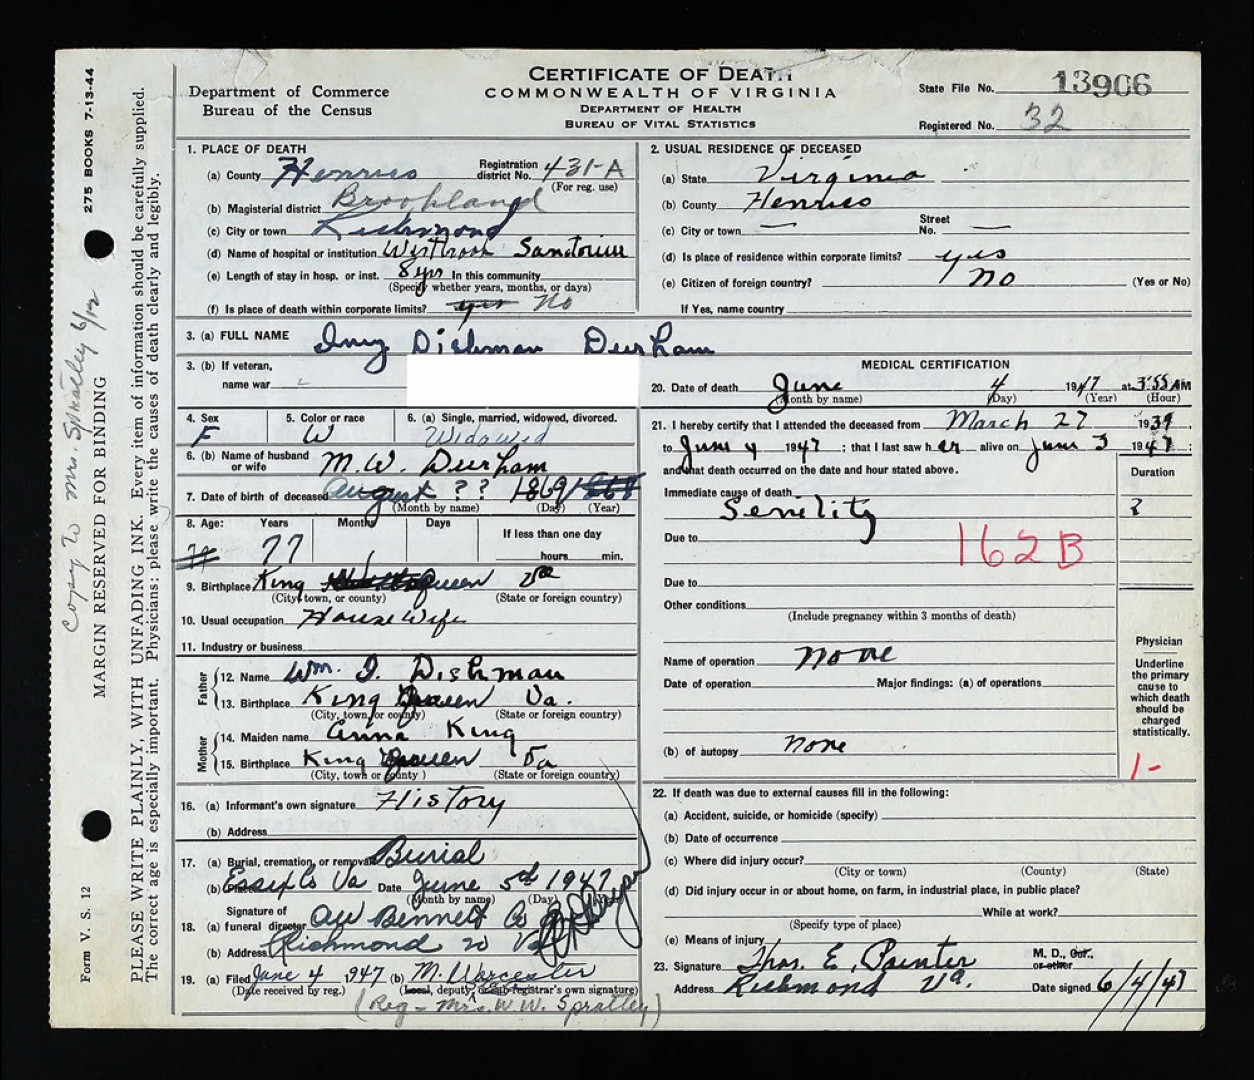 CERTIFICATE OF DEATH
COMMONWEALTH OF VIRGINIA
DEPARTMENT OF HEALTH
BUREAU OF VITAL STATISTICS
Department of Commerce
Bureau of the Census
State File No. 13906
Registered No. 32
275 BOOKS 7-13-44
Copy to Mrs. Spratley 6/12
MARGIN RESERVED FOR BINDING
Form V. S. 12
PLEASE WRITE PLAINLY, WITH UNFADING INK. Every item of information should be carefully supplied.
The correct age is especially important. Physicians: please write the causes of death clearly and legibly.
1. PLACE OF DEATH
(a) County Henrico Registration district No. 431-A
(For reg. use)
(b) Magisterial district Brookland
(c) City or town Richmond
(d) Name of hospital or institution Westbrook Sanatorium
(e) Length of stay in hosp. or inst. 8 yrs In this community
(Specify whether years, months, or days)
(f) Is place of death within corporate limits? yes No
2. USUAL RESIDENCE OF DECEASED
(a) State Virginia
(b) County Henrico
(c) City or town — Street No. —
(d) Is place of residence within corporate limits? yes
(e) Citizen of foreign country? No (Yes or No)
If Yes, name country
3. (a) FULL NAME Dishman Durham
3. (b) If veteran,
name war
4. Sex F
5. Color or race W
6. (a) Single, married, widowed, divorced. Widowed
6. (b) Name of husband or wife M. W. Durham
7. Date of birth of deceased August ?? 1869 1868
(Month by name) (Day) (Year)
8. Age: Years Months Days If less than one day
79 77 hours min.
9. Birthplace King Queen Va
(City, town, or county) (State or foreign country)
10. Usual occupation House Wife
11. Industry or business
Father
12. Name Wm. I. Dishman
13. Birthplace King Queen Va.
(City, town, or county) (State or foreign country)
Mother
14. Maiden name Anna King
15. Birthplace King Queen Va
(City, town or county) (State or foreign country)
16. (a) Informant's own signature History
(b) Address
17. (a) Burial, cremation, or removal Burial
(b) Place Essex Co Va Date June 5th 1947
(Month by name) (Day) (Year)
18. (a) Signature of funeral director AW Bennett Co
(b) Address Richmond 20 Va
19. (a) Filed June 4 1947 (b) M. Worcester
(Date received by reg.) (Local, deputy, or sub-registrar's own signature)
(Reg - Mrs. W. W. Spratley)
MEDICAL CERTIFICATION
20. Date of death June 4 1947 at 3:55 AM
(Month by name) (Day) (Year) (Hour)
21. I hereby certify that I attended the deceased from March 27 1939,
to June 4 1947; that I last saw h er alive on June 3 1947;
and that death occurred on the date and hour stated above.
Duration
Immediate cause of death
Senility ?
Due to 162B
Due to
Other conditions
(Include pregnancy within 3 months of death)
Name of operation none
Date of operation Major findings: (a) of operations
(b) of autopsy none
Physician
Underline
the primary
cause to
which death
should be
charged
statistically.
1-
22. If death was due to external causes fill in the following:
(a) Accident, suicide, or homicide (specify)
(b) Date of occurrence
(c) Where did injury occur?
(City or town) (County) (State)
(d) Did injury occur in or about home, on farm, in industrial place, in public place?
While at work?
(Specify type of place)
(e) Means of injury
23. Signature Thos. E. Painter M. D., Cor., or other
Address Richmond Va. Date signed 6/4/47